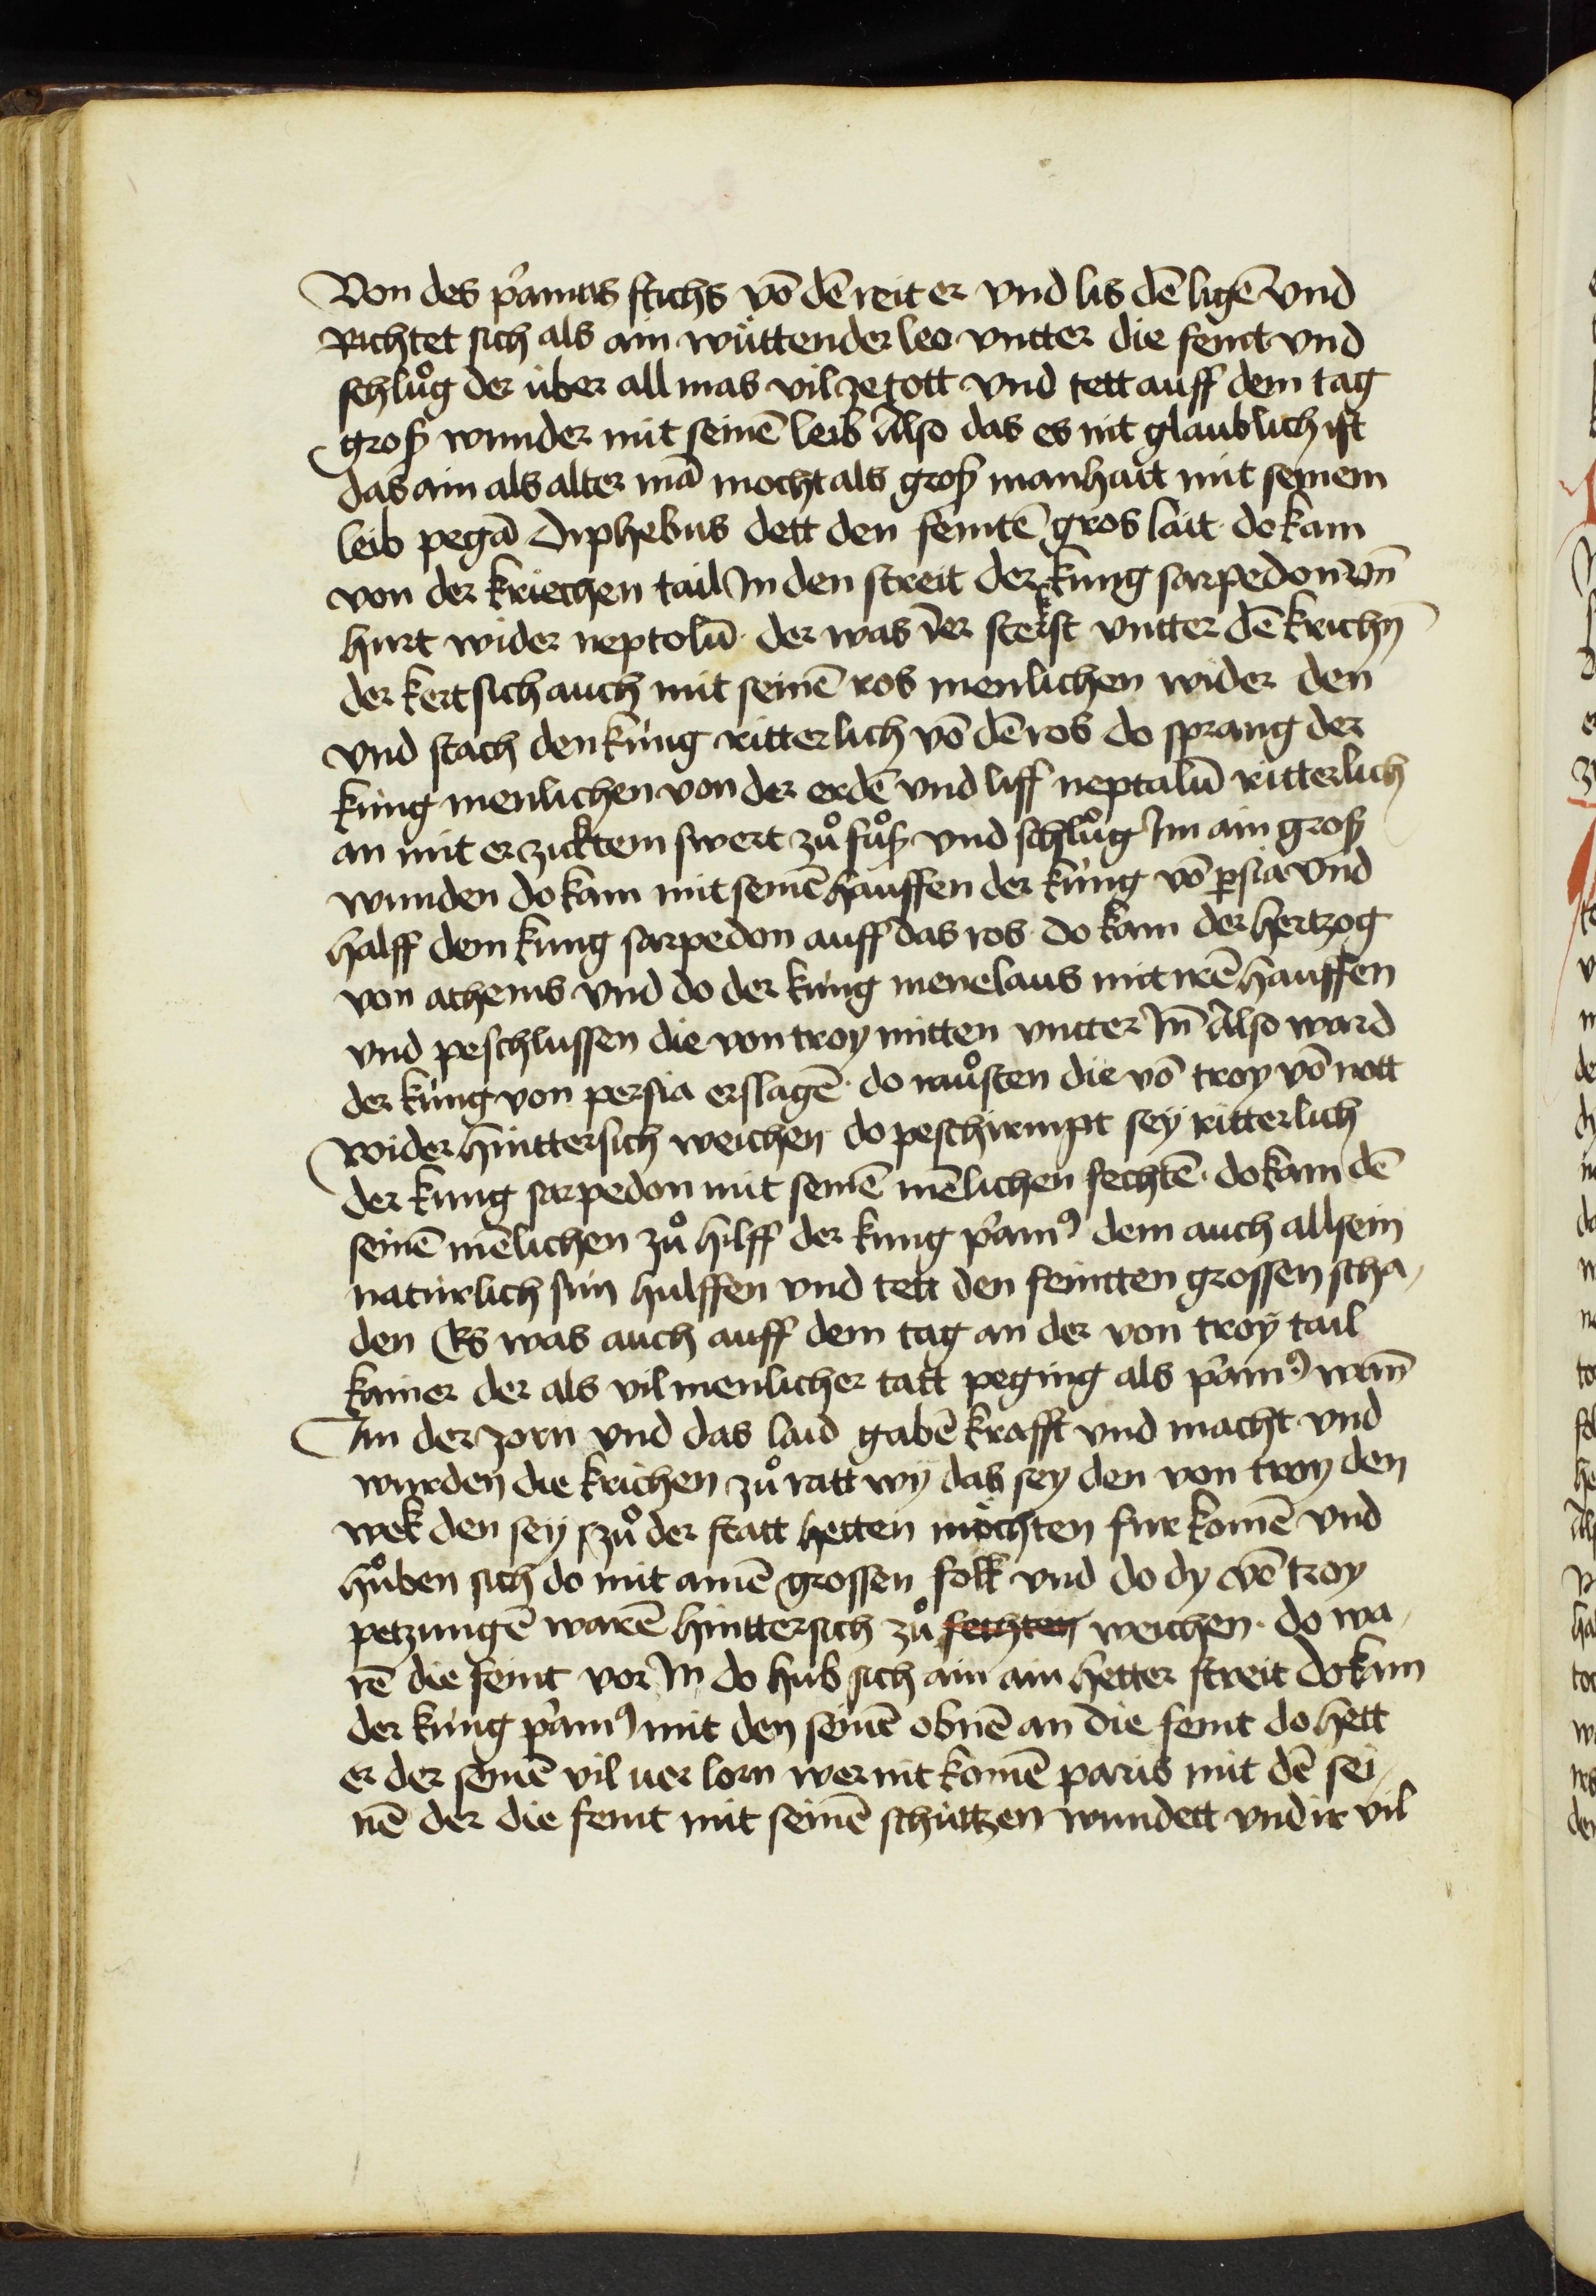 Von des p͛amus stichs vō dē reit er vnd lis dē ligē vnd
Richtet sich als ain wüttender leo vntter die feint vnd
schlůg der über all mas vil ze tott vnd tett auff dem tag
groß wunder mit seinē leib Also das es nit glaublich ist
das ain als alter mā mocht als groß manhait mit seinem
leib pegā Diphebus dett den feintē gros lait do kam
von der kriechen tail In den streit der kung sarpedon vn̄
hurt wider neptolū der was der sterkst vntter dē krichn̄
der kert sich auch mit seinē ros menlichen wider den
vnd stach den küng ritterlich vō dē ros do sprang der
küng menlichen von der erdē vnd liff neptalū ritterlich
an mit erzucktem swert zů fůß vnd schlůg Im ain groß
wunden do kam mit seinē hauffen der küng vō ꝑsia vnd
halff dem kung sarpedon auff das ros do kam der hertzog
von athenis vnd do der küng menelaus mit irē hauffen
vnd peschlussen die von troy mitten vntter In̄ Also ward
der küng von persia erslagē do můsten die vō troy vō nott
wider hinttersich weichen do peschirmpt sey ritterlich
der kung sarpedon mit seinē mēlichen fechtē do kam dē
seinē mēlichen zů hilff der kung p͛amꝰ dem auch all sein
natürlich sün hulffen vnd tett den feintten grossen scha
den Es was auch auff dem tag an der von troy tail
kainer der als vil menlicher tatt peging als p͛amꝰ wan̄
Im der zorn vnd das laid gabē krafft vnd macht vnd
wurden die krichen zů ratt wy das sey den von troy den
wek den sey zů der statt hetten möchten fur komē vnd
hůben sich do mit ainē grossen folk vnd do dy vō troy
petzungē warē hinttersich zů fechten weichen do wa
rē die feint vor In do hub sich ain ain hetter streit do kam
der küng p͛amꝰ mit den seinē obnē an die feint do hett
er der seinē vil uerlorn wer nit komē paris mit dē sei
nē der die feint mit seinē schüttzen wundett vnd ir vil